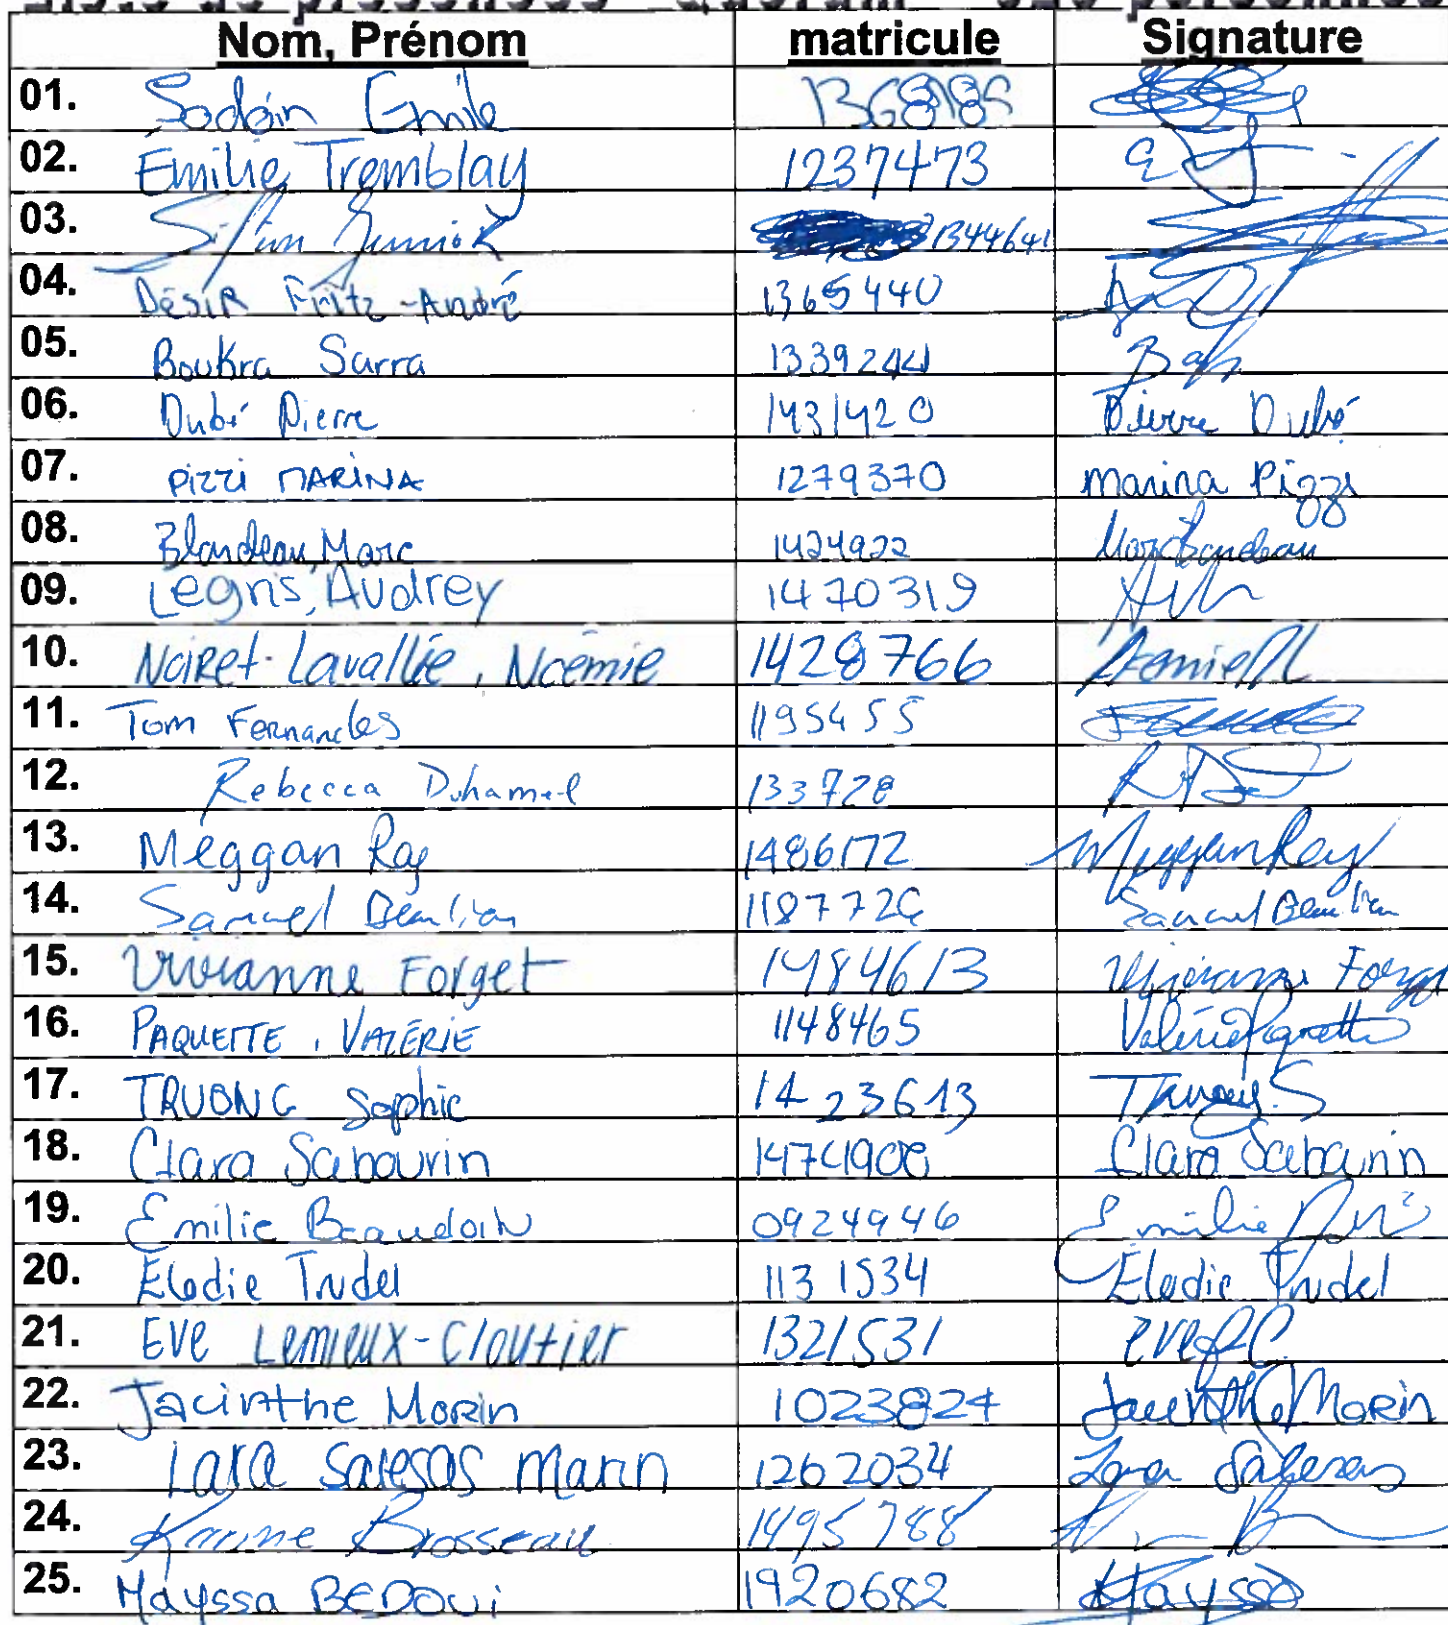 Liste de présences - Quorum
Nom, Prénom matricule Signature
01. Emile
02. Emilie Tremblay 1237473
03. 1344641
04. Désir Fritz-André 1365440
05. Boukra Sarra 1339244
06. Dubé Pierre 1431420 Pierre Dubé
07. Pizzi MARINA 1279370 Marina Pizzi
08. Blondeau, Marc 1424922 Marc Blondeau
09. Legris, Audrey 1470319
10. Noiret-Lavallée, Noémie 1428766
11. Tom Fernandes 1195455
12. Rebecca Duhamel 133728
13. Méggan Roy 1486172 Méggan Roy
14. Samuel Beaulieu 1187726 Samuel Beaulieu
15. Vivianne Forget 1484613 Vivianne Forget
16. PAQUETTE, VALÉRIE 1148465 Valérie Paquette
17. TRUONG Sophie 1423613 Truong S
18. Clara Sabourin 1474908 Clara Sabourin
19. Emilie Beaudoin 0924946 Emilie
20. Élodie Trudel 1131534 Élodie Trudel
21. Eve Lemieux-Cloutier 1321531
22. Jacinthe Morin 1023824 Jacinthe Morin
23. Lara Salesas Marin 1262034 Lara Salesas
24. Karine Brosseau 1495788
25. Mayssa BEDOUi 1920682 Mayssa